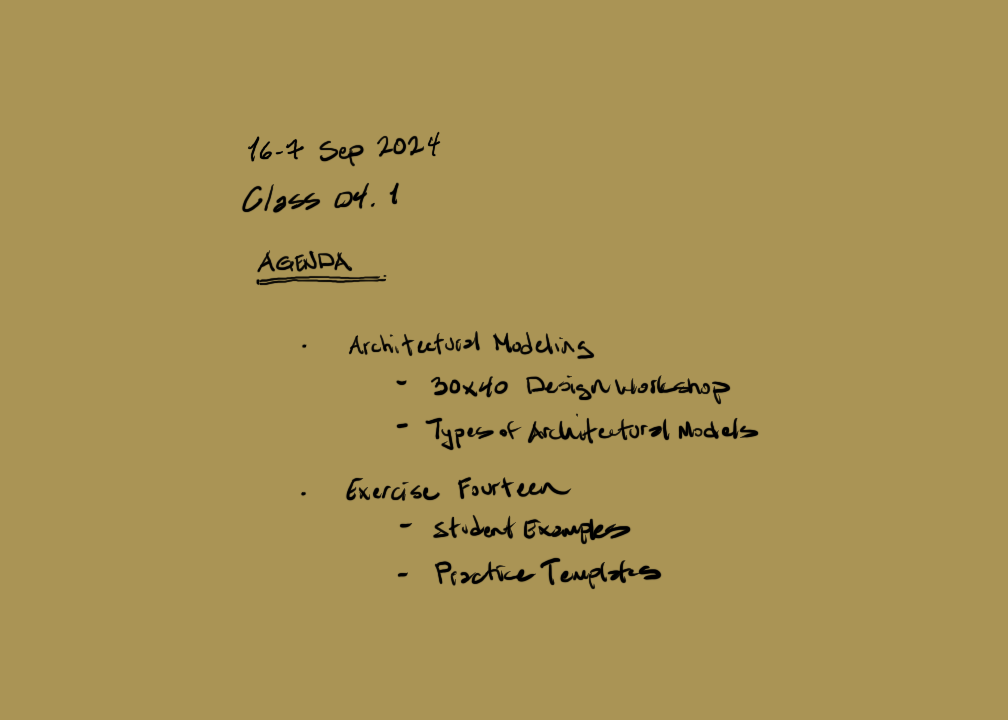 16-7 Sep 2024
Class 04.1
AGENDA
· Architectural Modeling
- 30x40 Design Workshop
- Types of Architectural Models
· Exercise Fourteen
- Student Examples
- Practice Templates